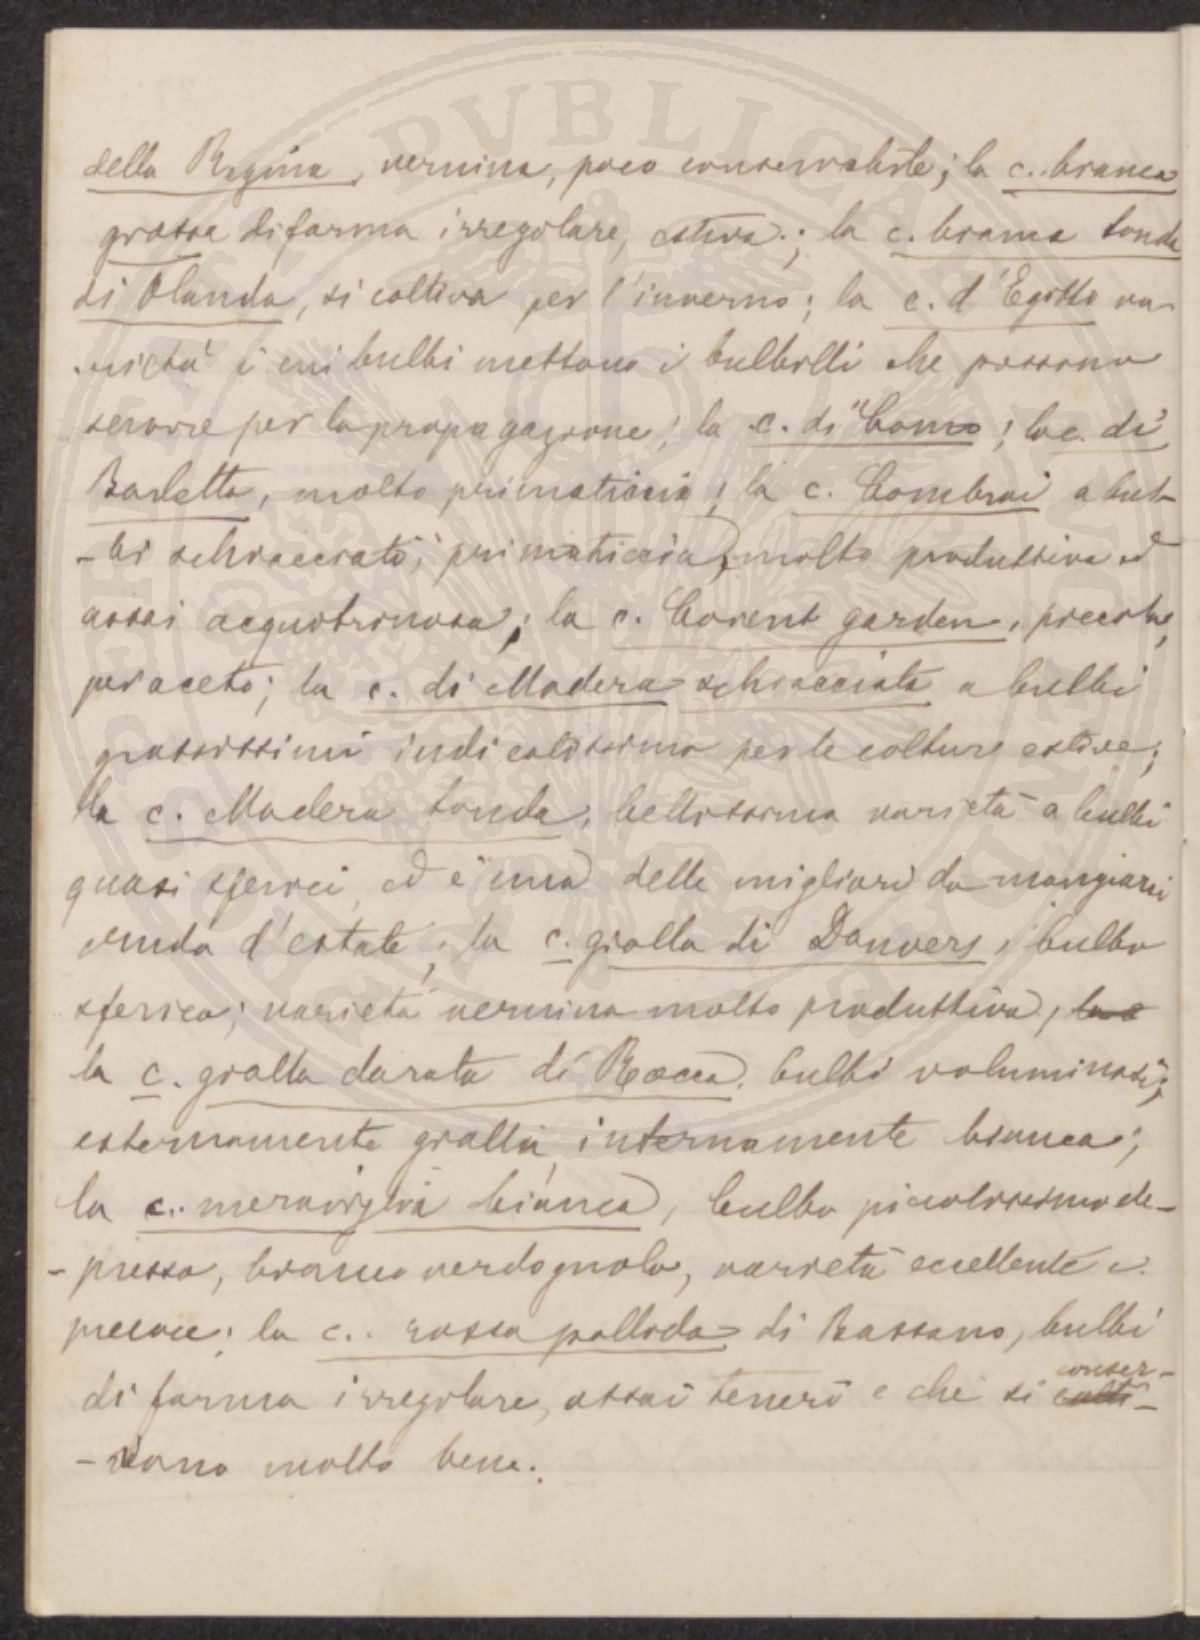 della Regina, vernina, poco conservabile; la c. bianca
grossa di forma irregolare, estiva; la c. bianca tonda
di Olanda, si coltiva per l'inverno; la c. d'Egitto va-
rietà i cui bulbi mettono i bulbilli che possono
servire per la propagazione; la c. di Como; la c. di
Barletta, molto primaticcia; la c. Cambrai a bul-
-bi schiacciati, primaticcia, molto produttiva ed
assai acquitrinosa; la c. Covent garden, precoce,
per aceto; la c. di Madera schiacciata a bulbi
grossissimi indicatissima per le colture estive;
la c. Madera tonda, bellissima varietà a bulbi
quasi sferici, ed è una delle migliori da mangiarsi
cruda d'estate, la c. gialla di Danvers, bulbo
sferico; varietà vernina molto produttiva, la c
la c. gialla dorata di Rocca, bulbi voluminosi,
esternamente gialli, internamente bianca;
la c. meraviglia bianca, bulbo piccolissimo de-
-presso, bianco verdognolo, varietà eccellente e
precoce; la c. rossa pallida di Bassano, bulbi
di forma irregolare, assai teneri e che si conser-
-vano molto bene.
PVBLICA